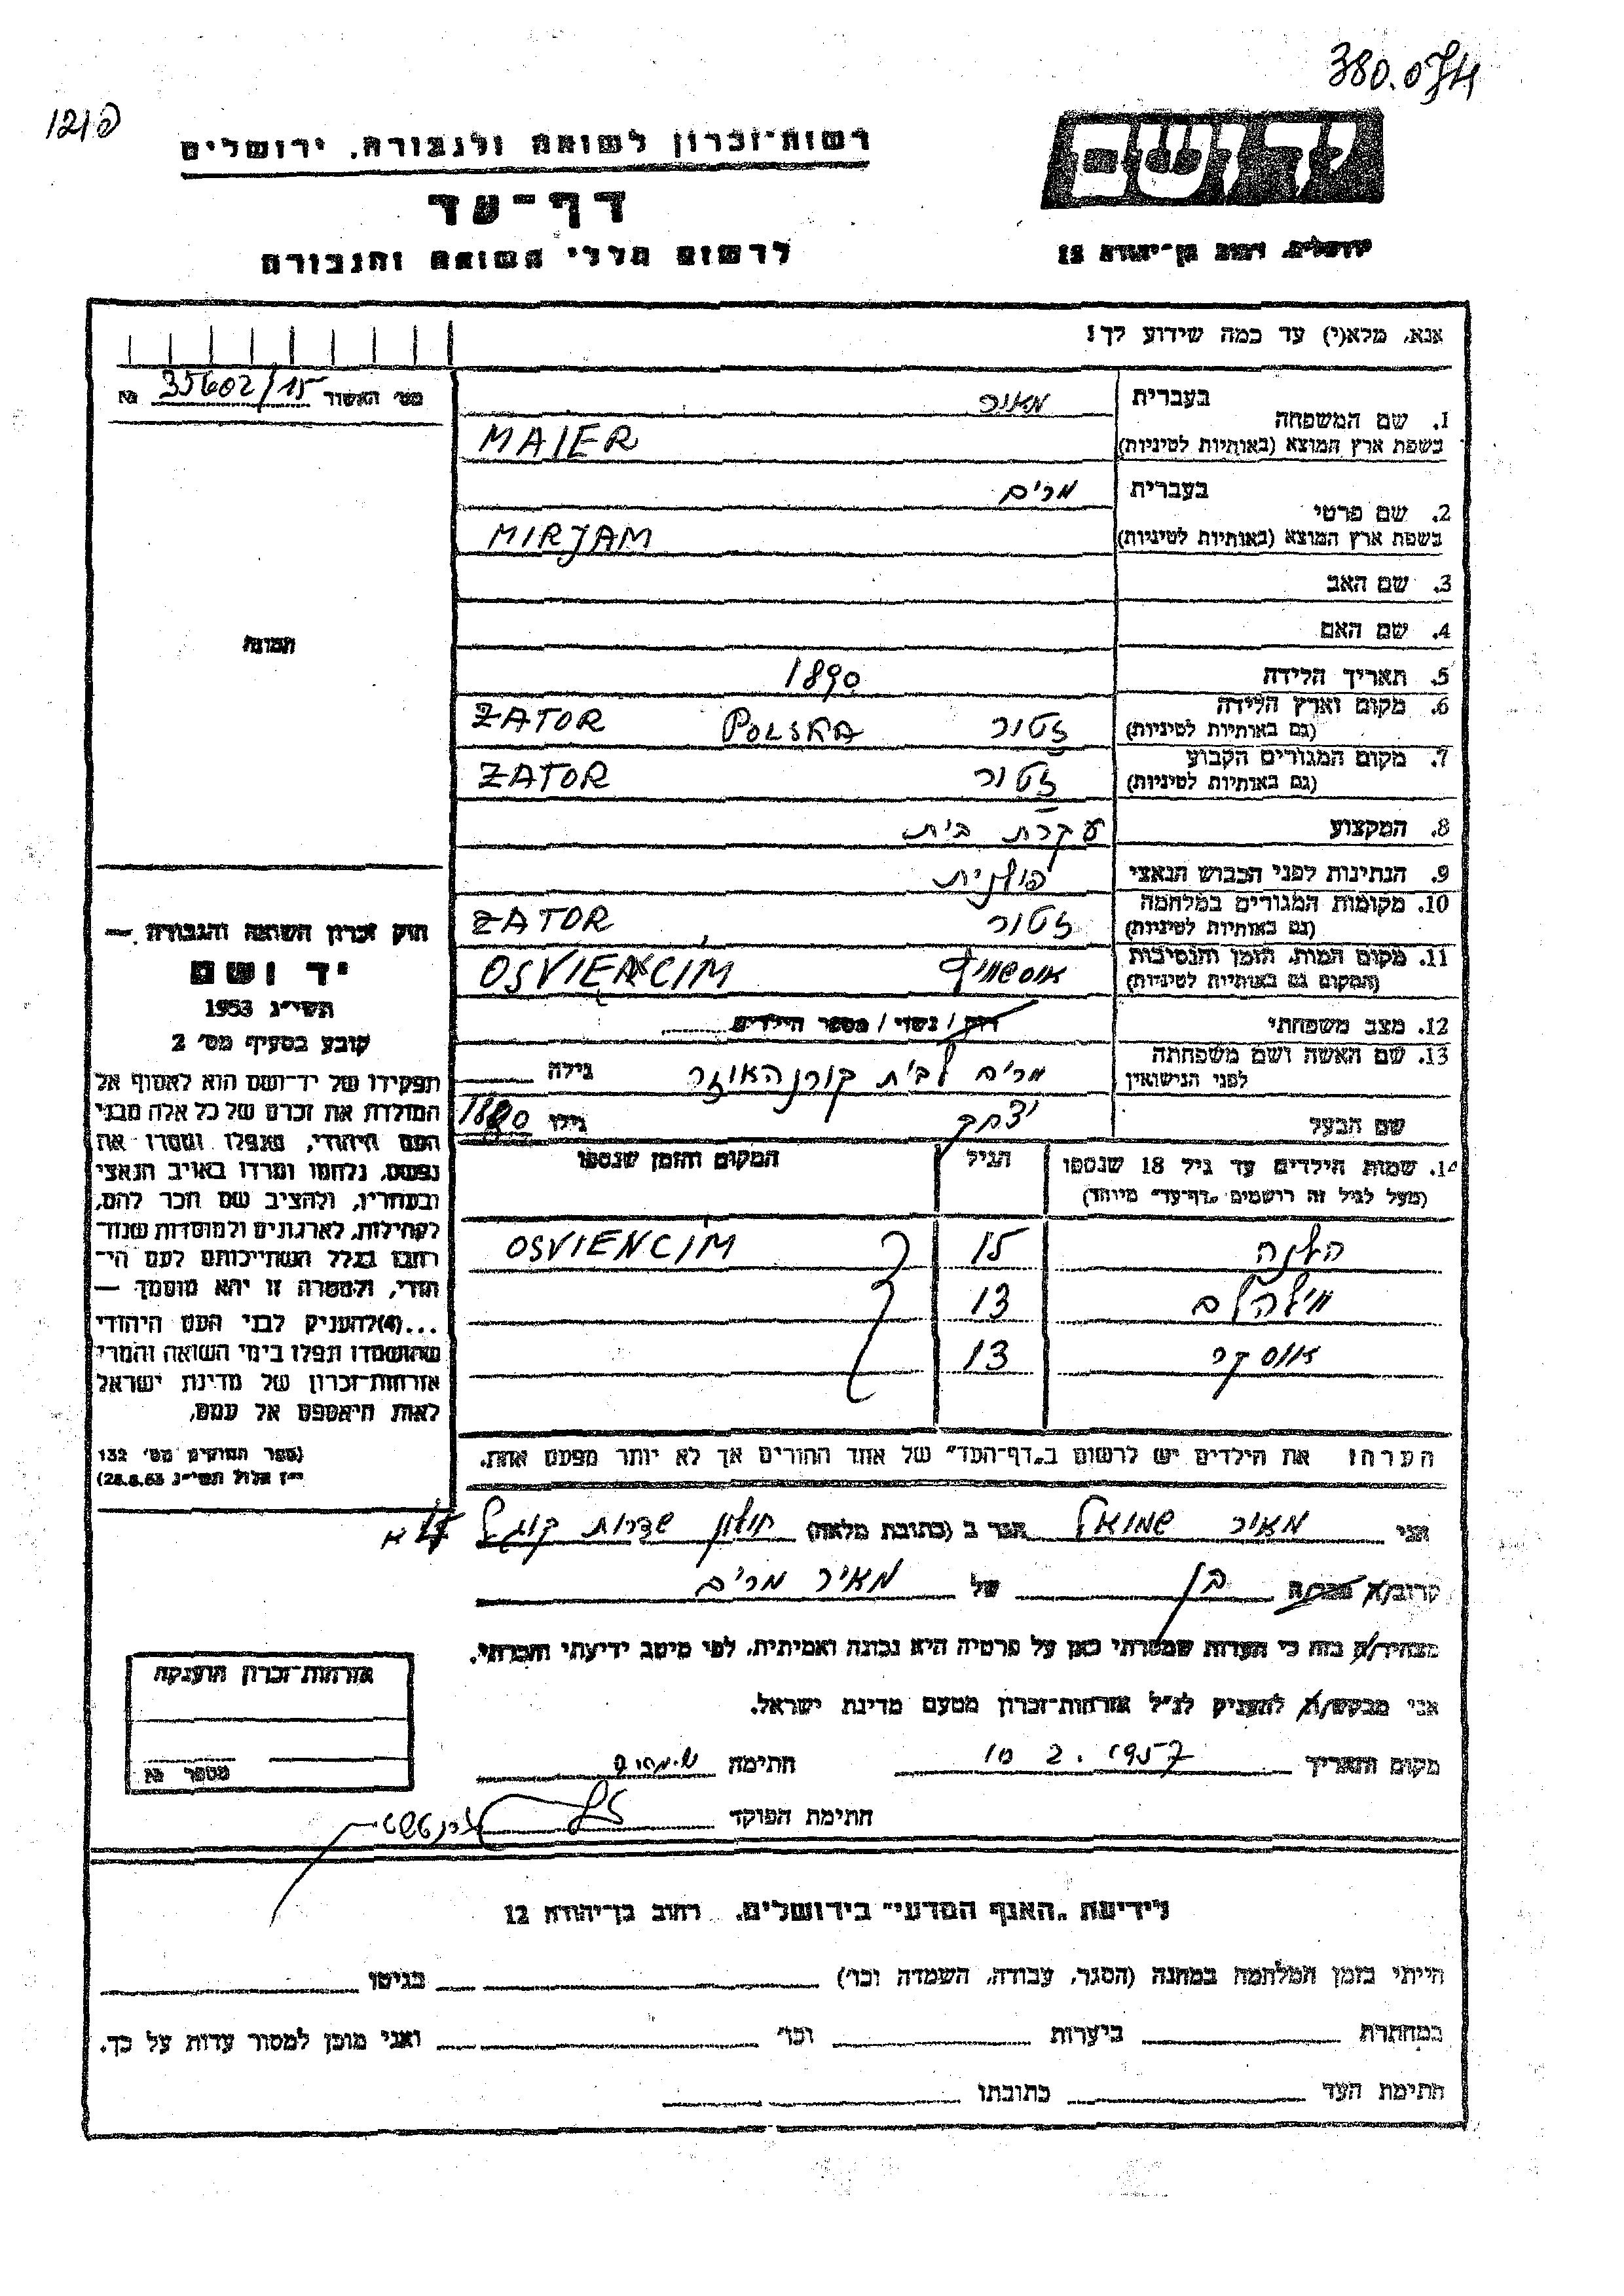 380.074
פ/121
יד ושם
רשות־זכרון לשואה ולגבורה, ירושלים
דף־עד
לרשום חללי השואה והגבורה
ירושלים, רחוב בן־יהודה 12
אנא, מלא(י) עד כמה שידוע לך!
מס׳ האשור 35602/15 №
1. שם המשפחה בעברית מאיר
בשפת ארץ המוצא (באותיות לטיניות) MAIER
2. שם פרטי בעברית מרים
בשפת ארץ המוצא (באותיות לטיניות) MIRJAM
3. שם האב
4. שם האם
5. תאריך הלידה 1890
6. מקום וארץ הלידה (גם באותיות לטיניות) זטור POLSKA ZATOR
7. מקום המגורים הקבוע (גם באותיות לטיניות) זטור ZATOR
8. המקצוע עקרת בית
9. הנתינות לפני הכבוש הנאצי פולנית
10. מקומות המגורים במלחמה (גם באותיות לטיניות) זטור ZATOR
11. מקום המות, הזמן והנסיבות (המקום גם באותיות לטיניות) OSVIENCIM
12. מצב משפחתי רווק / נשוי / מספר הילדים
13. שם האשה ושם משפחתה לפני הנישואין מרים לבית קורנהאוזר גילה
שם הבעל יצחק גילו 1880
14. שמות הילדים עד גיל 18 שנספו הגיל המקום והזמן שנספו
(מעל לגיל זה רושמים „דף־עד״ מיוחד)
הלנה 15 OSVIENCIM
וילהלם 13
אוסקר 13
הערה: את הילדים יש לרשום ב„דף־העד״ של אחד ההורים אך לא יותר מפעם אחת.
התמונה
חוק זכרון השואה והגבורה —
יד ושם
תשי״ג 1953
קובע בסעיף מס׳ 2
תפקידו של יד־ושם הוא לאסוף אל
המולדת את זכרם של כל אלה מבני
העם היהודי, שנפלו ומסרו את
נפשם, נלחמו ומרדו באויב הנאצי
ובעוזריו, ולהציב שם וזכר להם,
לקהילות, לארגונים ולמוסדות שנח־
רבו בגלל השתייכותם לעם הי־
הודי, ולמטרה זו יהא מוסמך —
...(4)להעניק לבני העם היהודי
שהושמדו ונפלו בימי השואה והמרי
אזרחות־זכרון של מדינת ישראל
לאות היאספם אל עמם.
(ספר החוקים מס׳ 132
י״ז אלול תשי״ג 28.8.53)
אני מאיר שמואל הגר ב (כתובת מלאה) חולון שדרות קוגל
קרוב/ה מכר/ה בן של מאיר מרים
מצהיר/ה בזה כי העדות שמסרתי כאן על פרטיה היא נכונה ואמיתית, לפי מיטב ידיעתי והכרתי.
אני מבקש/ת להעניק לנ״ל אזרחות־זכרון מטעם מדינת ישראל.
מקום ותאריך 10 2. 1957 חתימה
חתימת הפוקד
אזרחות־זכרון הוענקה
מספר №
לידיעת „האגף המדעי״ בירושלים, רחוב בן־יהודה 12
הייתי בזמן המלחמה במחנה (הסגר, עבודה, השמדה וכו׳) בגיטו
במחתרת ביערות וכו׳ ואני מוכן למסור עדות על כך.
חתימת העד כתובתו